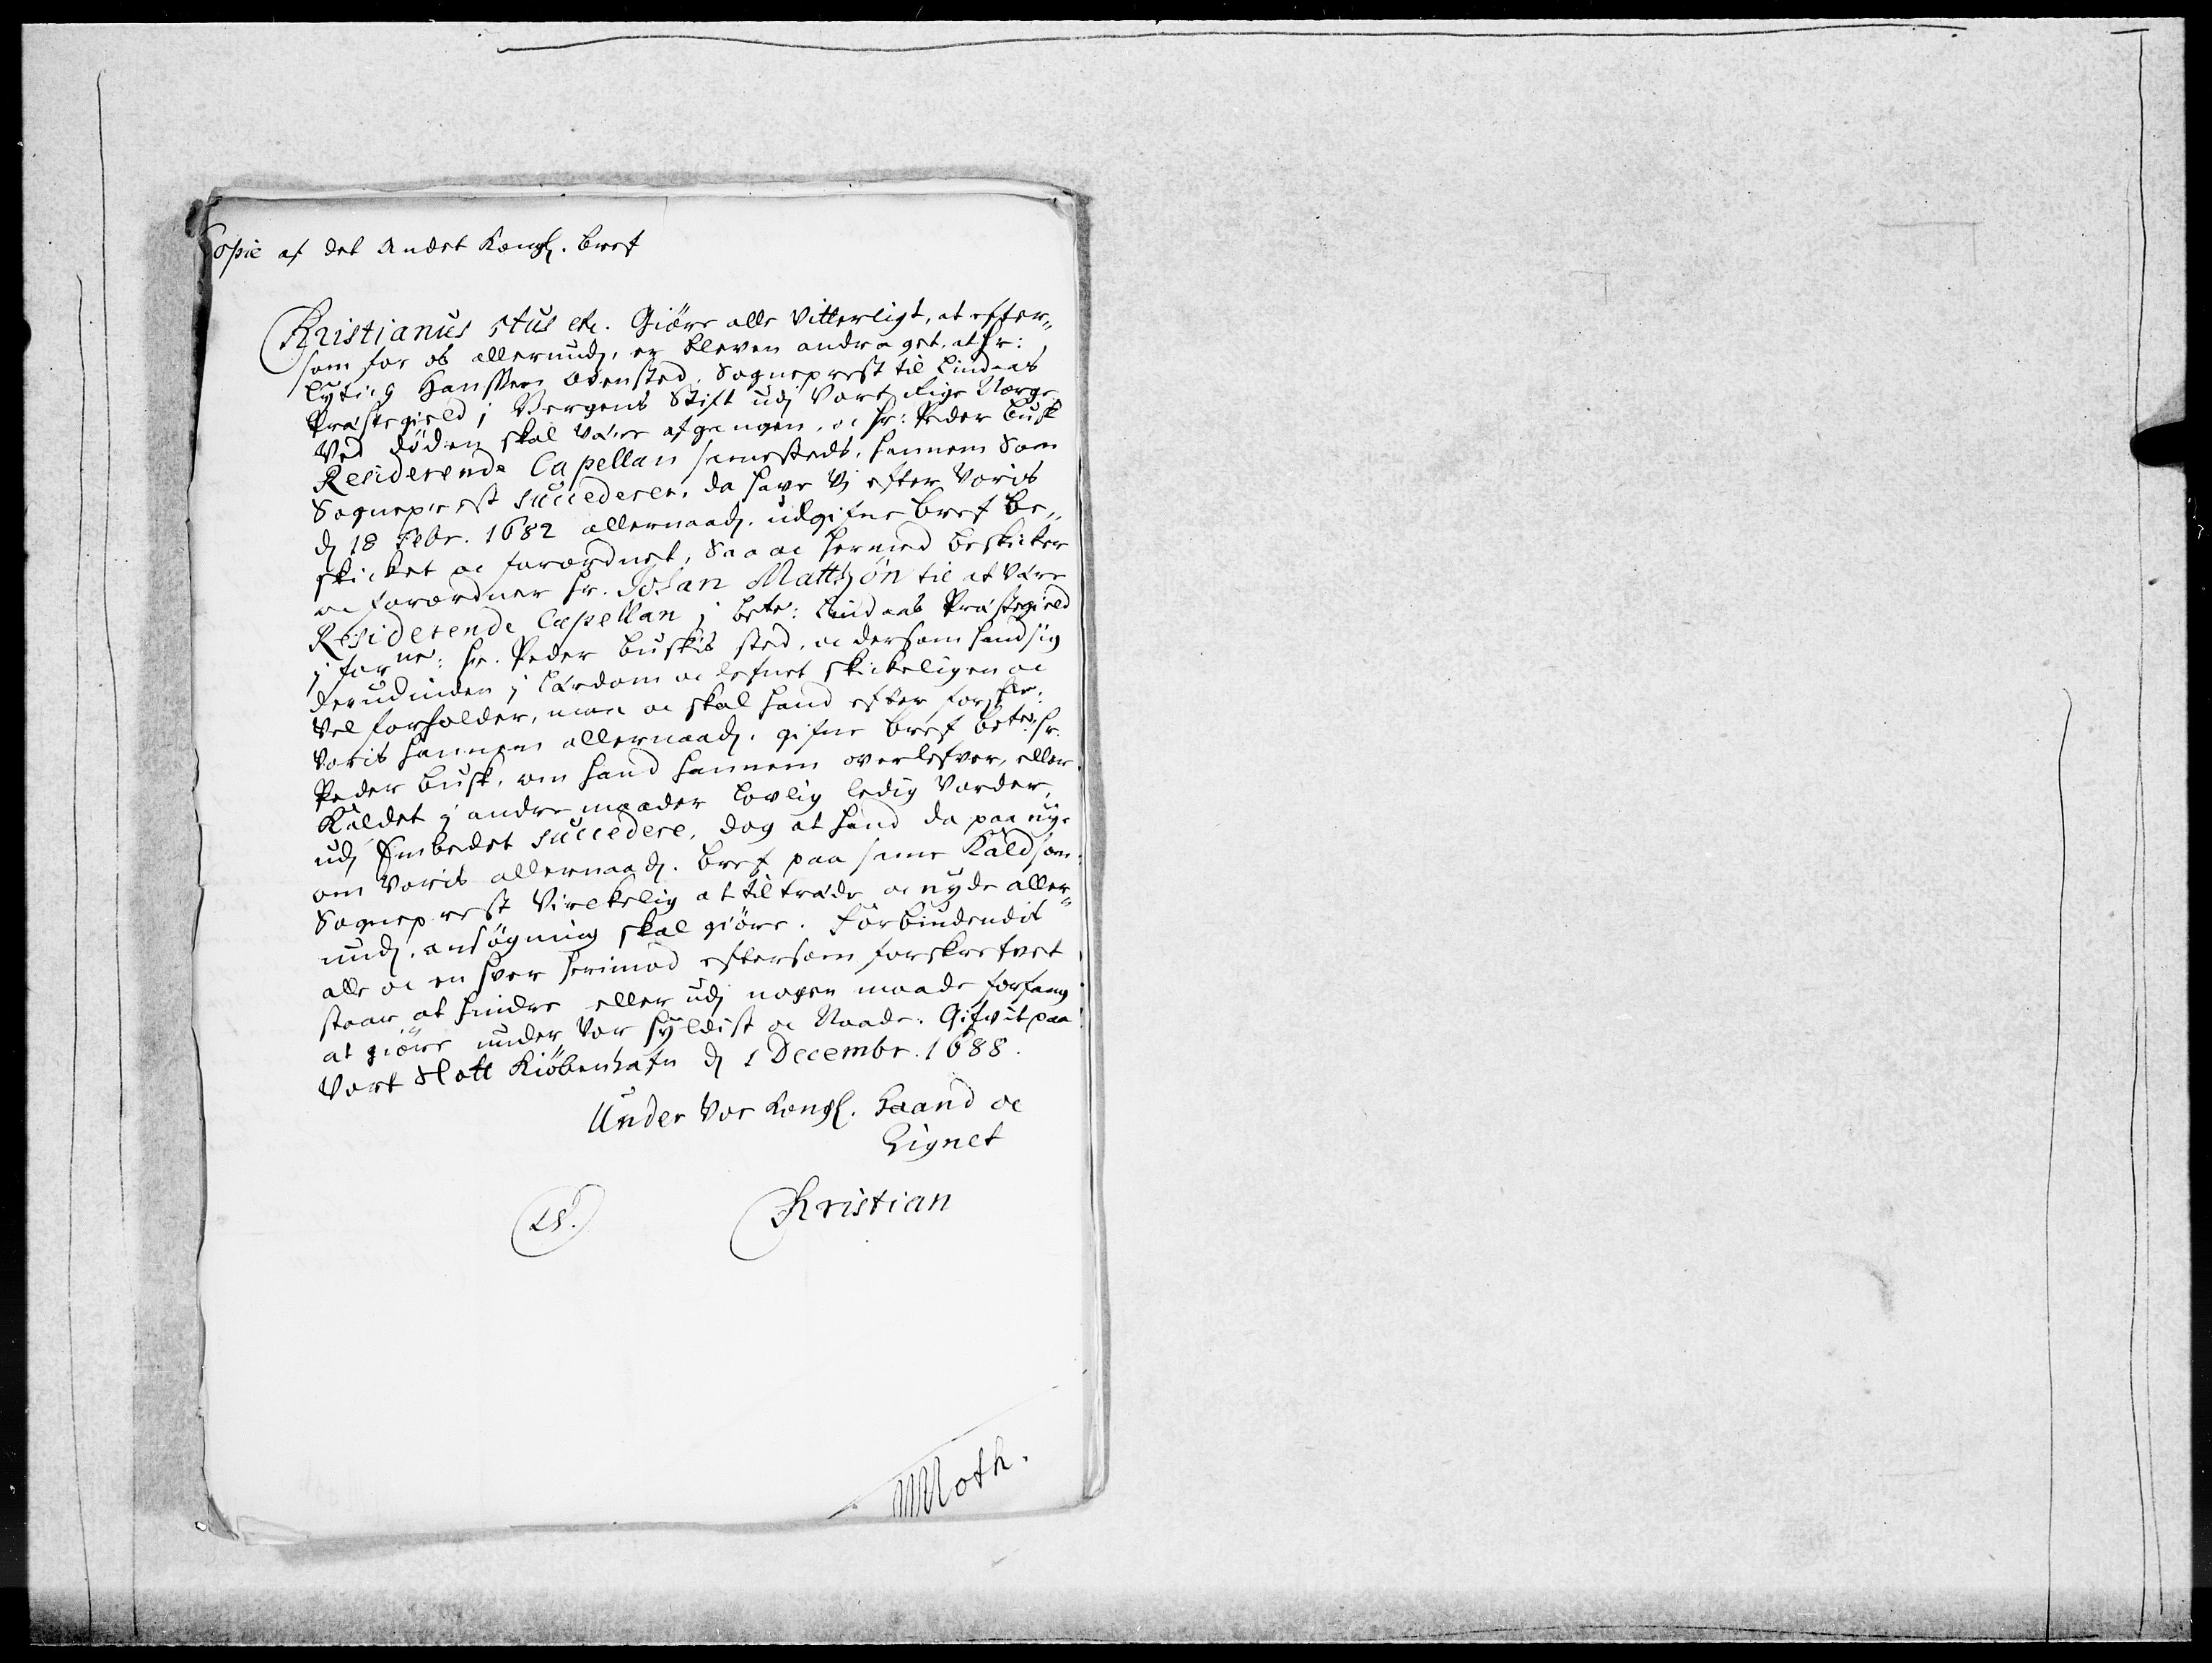 Copie af det Andet Kongl. bref
Christianus 5tus etc. Giöre alle Vitterligt, at efter„
som for os allerund. er bleven andraget, at Hr:
Hanssen Odensted, Sogneprest til Lindaas
Præstegield i Bergens Stift udj Vort Rige Norge
Ved döden skal være afgangen, oc Hr: Peder Busk
Residerende Capellan samesteds, hannem som
Sogneprest succederer, da have Vj efter Voris
dj 18 Febr. 1682 allernaadj. udgifne bref be„
skicket oc forordnet, saa oc hermed beskicker
oc forordner Hr. Johan Matthsøn til at være
Residerende Capellan j bete: Lindaas Præstegield
j forne: Hr. Peder Buskis sted, oc dersom hand sig
derudinden j lærdom oc lefnet skickeligen oc
vel forholder, maa oc skal hand efter forskr:
Voris hannem allernaadj. gifne bref bete: Hr.
Peder Busk, om hand hannem overlefver, eller
Kaldet j andre maader lovlig ledig vorder,
udj Embedet succedere, dog at hand da paa nye
om Voris allernaadj. bref paa same Kald som
Sogneprest Virckelig at tiltræde oc nyde aller„
undj. ansögning skal giöre. Forbindendis
alle oc en hver herimod eftersom forskrefvet
staar at hindre eller udj nogen maade forfang
at giöre under Vor hyldist oc Naade. Gifvit paa
Vort Slott Kiöbenhafn dj 1 Decembr. 1688.
Under Vor Kongl. Haand oc
Signet
LS.
Christian
MMoth.